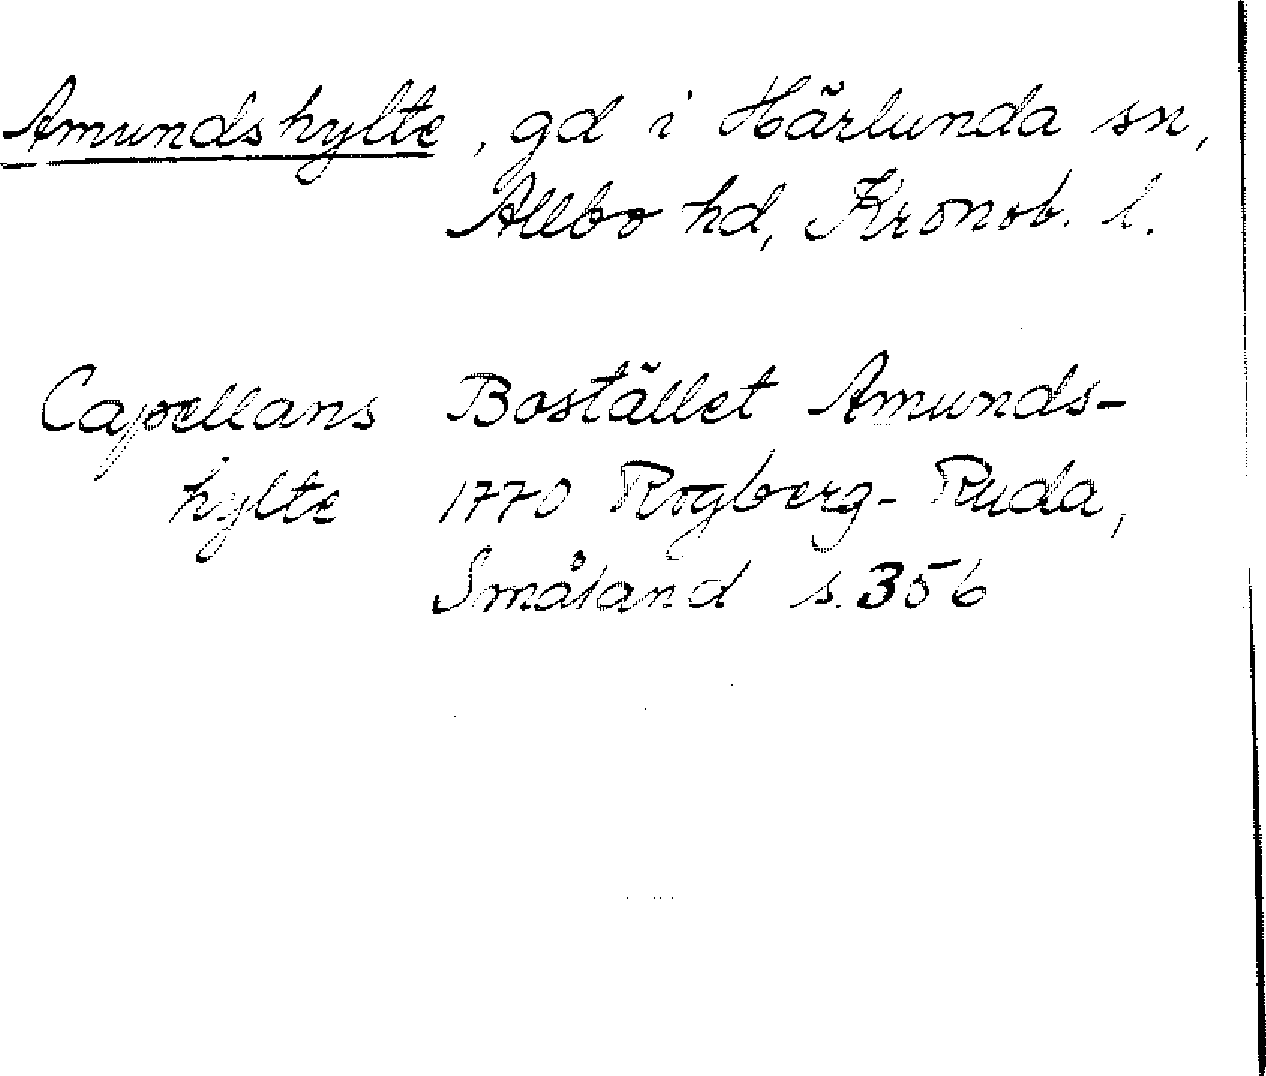 Amundshylte, gd i Härlunda sn,
Allbo hd, Kronob. l.
Capellans Bostället Amunds-
hylte 1770 Rogberg-Ruda,
Småland s. 356